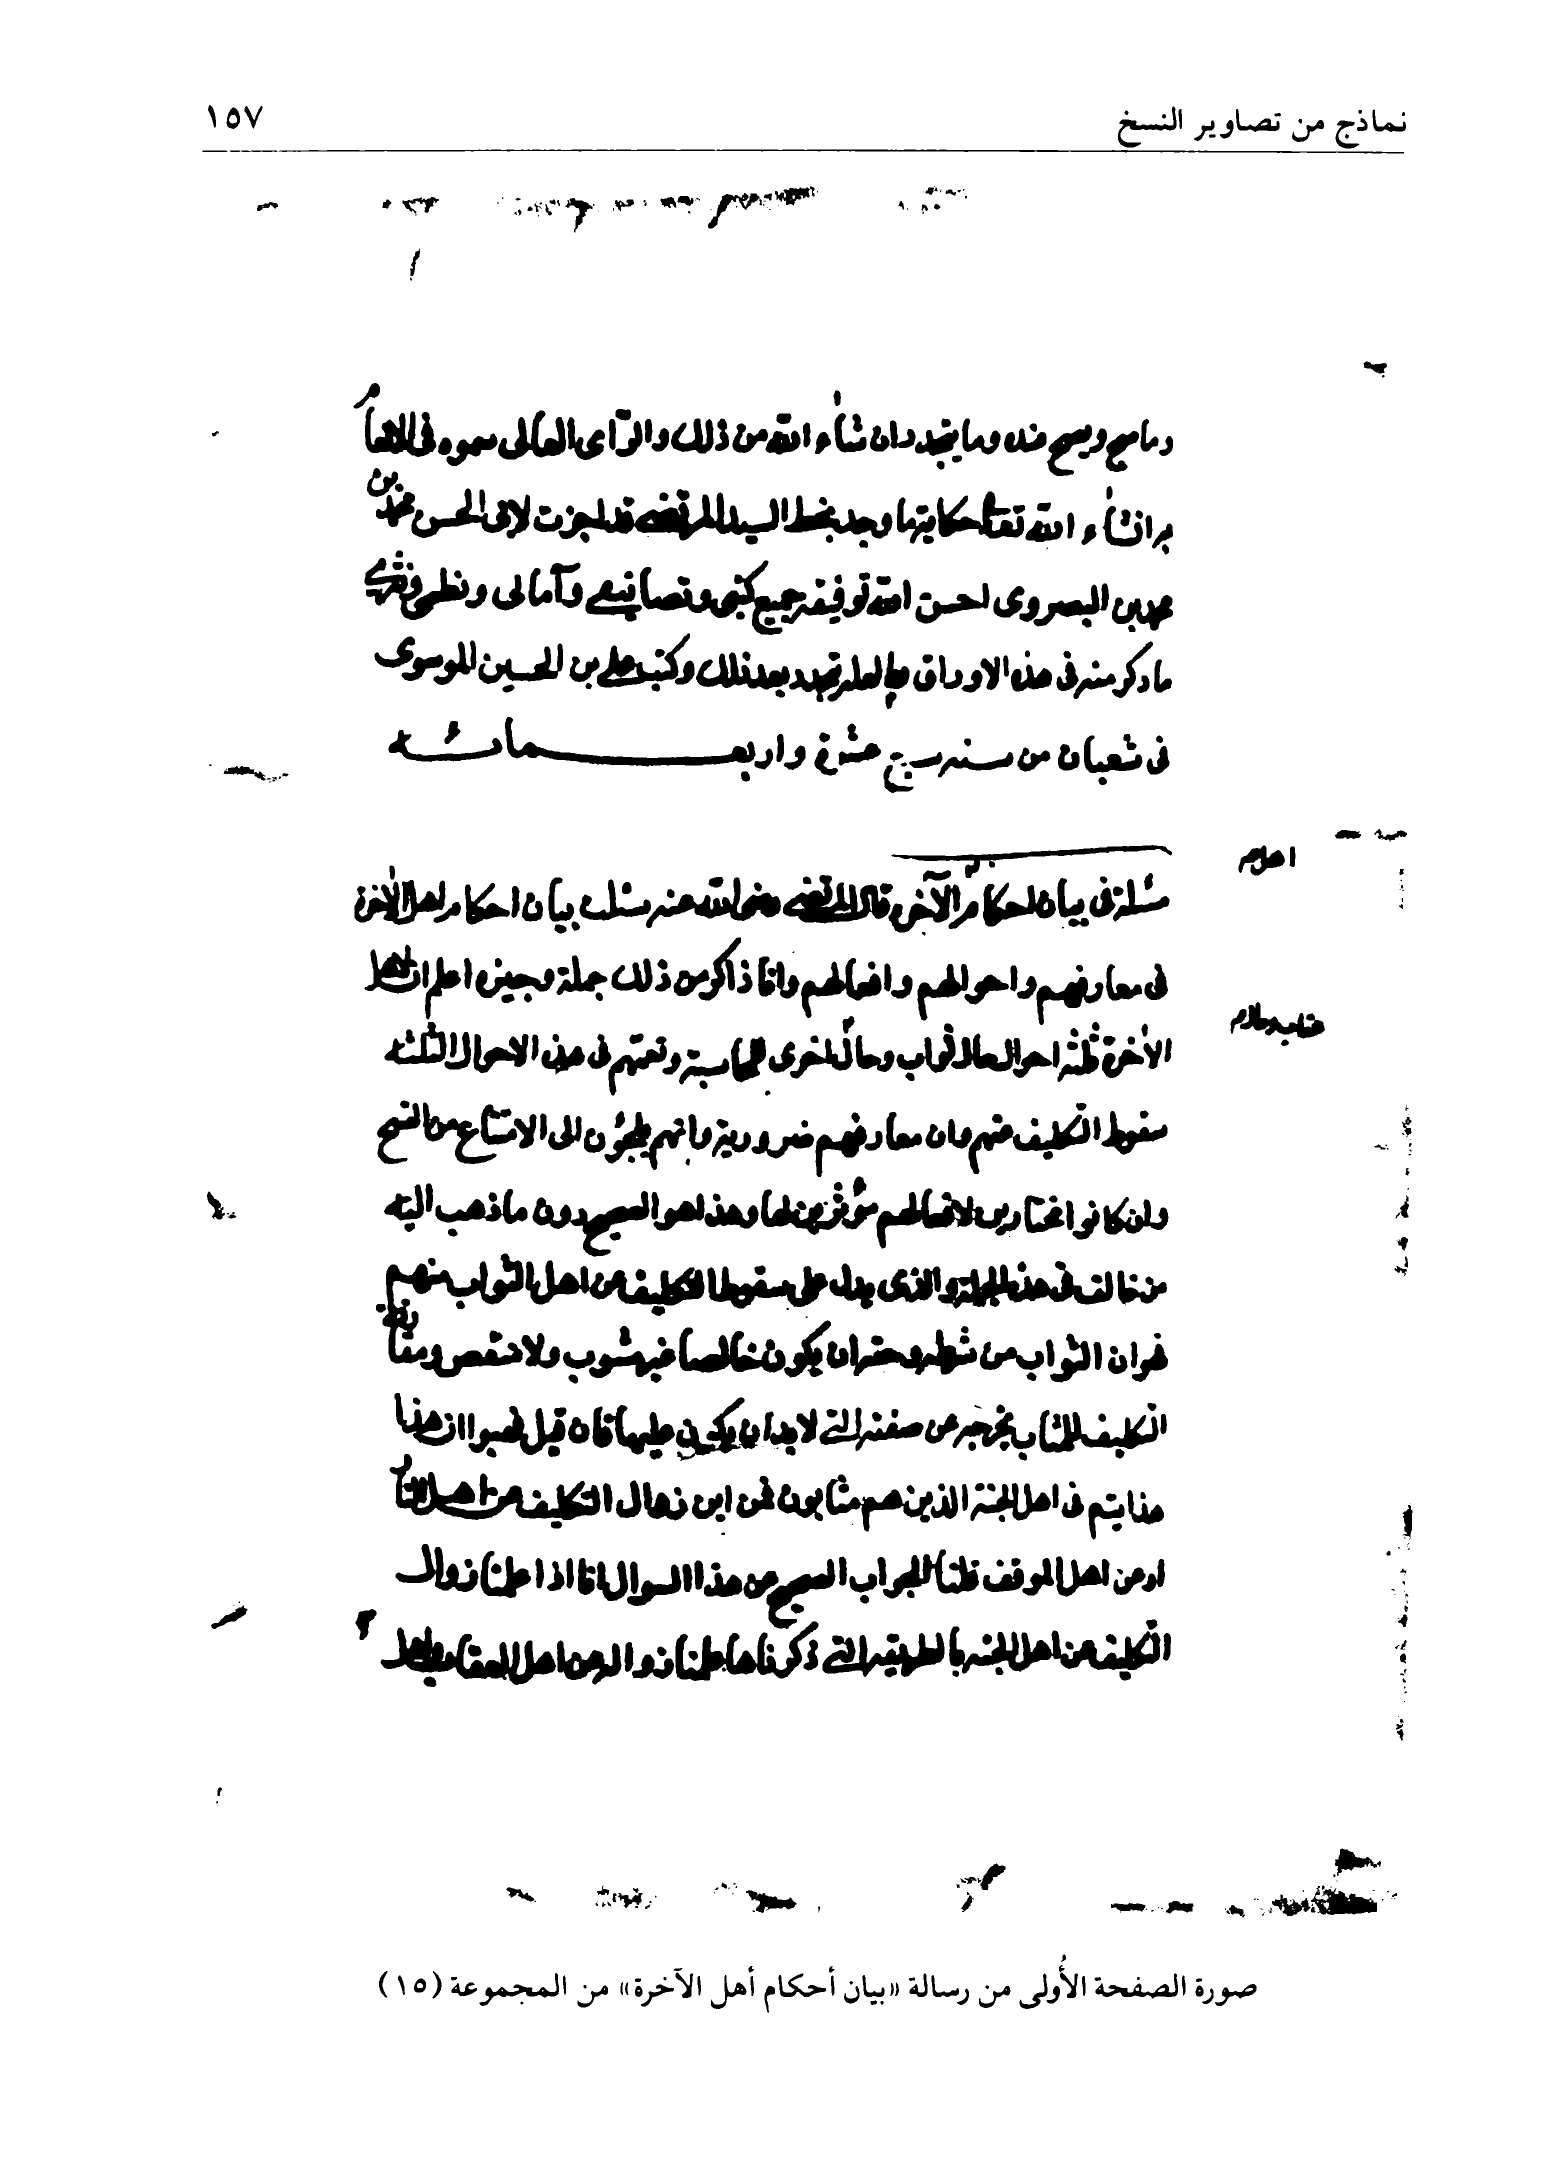 نماذج من تصاوير النسخ ١٥٧
وما صح ويصح عنده وما يتجدد ان شاء الله من ذلك والرأى العالى سموه فى الانعام
به انشاء الله تعالى حكاية ما وجد بخط السيد المرتضى قد اجزت لابى الحسن محمد بن
محمد بن البصروى احسن الله توفيقه جميع كتبى وتصانيفى وآمالى ونظمى ونثرى
ما ذكر منه فى هذه الاوراق وما لعله تجدد بعد ذلك وكتب على بن الحسين الموسوى
فى شعبان من سنه سبع عشرة واربعمائه
مسئلة فى بيان احكام الآخرة قال المرتضى رضى الله عنه سئلت بيان احكام اهل الآخرة
فى معارفهم واحوالهم وافعالهم وانا ذاكر من ذلك جملة وجيزه اعلم ان لاهل
الآخرة ثلثه احوال حال ثواب وحال اخرى للمحاسبة وتعمّهم فى هذه الاحوال الثلثه
سقوط التكليف عنهم وان معارفهم ضرورية وانهم ملجؤن الى الامتناع من القبيح
وان كانوا مختارين لافعالهم مؤثرين لها وهذا هو الصحيح دون ما ذهب اليه
من خالف فى هذه الجملة والذى يدل على سقوط التكليف عن اهل الثواب منهم
فهو ان الثواب من شرطه وحقه ان يكون خالصا غير مشوب ولا منقص ومقارنة
التكليف للمثاب يخرجه عن صفته التى لا بد ان يكون عليها فان قيل فهبوا ان هذا
هذا يتم فى اهل الجنة الذين هم مثابون فمن اين زوال التكليف عن اهل النار
او عن اهل الموقف قلنا الجواب الصحيح عن هذا السوال انا اذا علمنا زوال
التكليف عن اهل الجنه بالطريقه التى ذكرناها علمنا زواله عن اهل العقاب واهل
صورة الصفحة الأُولى من رسالة «بيان أحكام أهل الآخرة» من المجموعة (١٥)